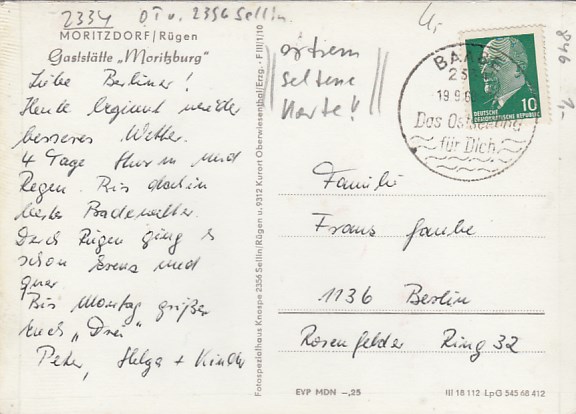 2334 OT v. 2356 Sellin.
MORITZDORF/Rügen
Gaststätte „Moritzburg"
Liebe Berliner!
Heute beginnt wieder
besseres Wetter.
4 Tage Sturm und
Regen. Bis dahin
bestes Badewetter.
Durch Rügen ging es
schon kreuz und
quer.
Bis Montag grüßen
Euch „Drei"
Peter, Helga + Kinder
Fotospezialhaus Knospe 2356 Sellin/Rügen u. 9312 Kurort Oberwiesenthal/Erzg. · F III/1/10
extrem
seltene
Karte!!
BA
23
19.9.6
Das Ostseebad
für Dich
DEUTSCHE
DEMOKRATISCHE REPUBLIK
10
846
1,-
Familie
Franz Gaube
1136 Berlin
Rosenfelder Ring 32
EVP MDN –,25
III 18 112 LpG 545 68 412